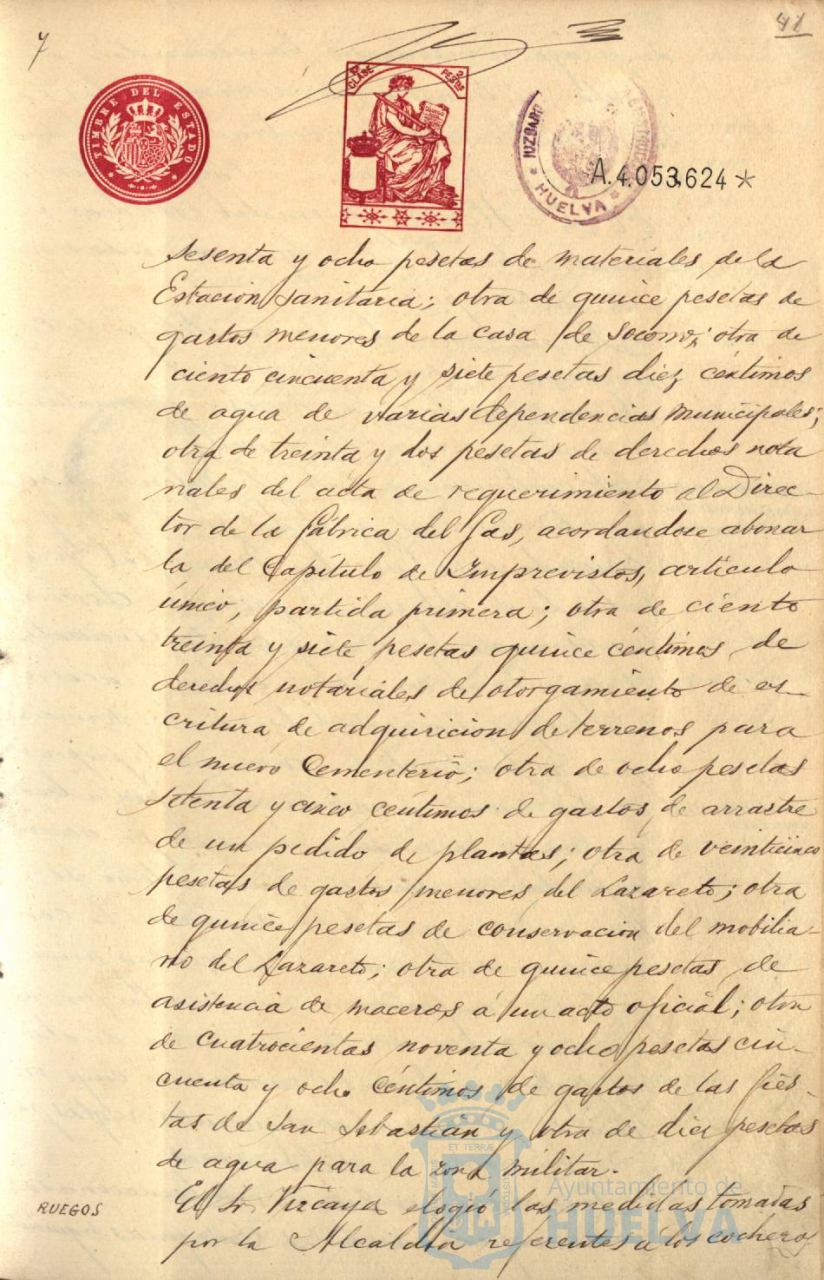 7
41
TIMBRE DEL ESTADO
9ª CLASE
2 PESETAS
JUZGADO
HUELVA
A.4.053.624*
sesenta y ocho pesetas de materiales de la
Estación sanitaria; otra de quince pesetas de
gastos menores de la casa de Socorro; otra de
ciento cincuenta y siete pesetas diez céntimos
de agua de varias dependencias municipales;
otra de treinta y dos pesetas de derechos nota
riales del acta de requerimiento al Direc-
tor de la fábrica del Gas, acordandose abonar
la del Capítulo de Imprevistos, artículo
único, partida primera; otra de ciento
treinta y siete pesetas quince céntimos de
derechos notariales de otorgamiento de es-
critura de adquiricion de terrenos para
el nuevo Cementerio; otra de ocho pesetas
setenta y cinco céntimos de gastos de arrastre
de un pedido de plantas; otra de veinticinco
pesetas de gastos menores del Lazareto; otra
de quince pesetas de conservación del mobilia-
rio del Lazareto; otra de quince pesetas de
asistencia de maceros á un acto oficial; otra
de cuatrocientas noventa y ocho pesetas cin-
cuenta y ocho céntimos de gastos de las fies-
tas de San Sebastián y otra de diez pesetas
de agua para la zona militar.
RUEGOS
El Sr. Vizcaya elogió las medidas tomadas
por la Alcaldía referentes á los cocheros
Ayuntamiento de
HUELVA